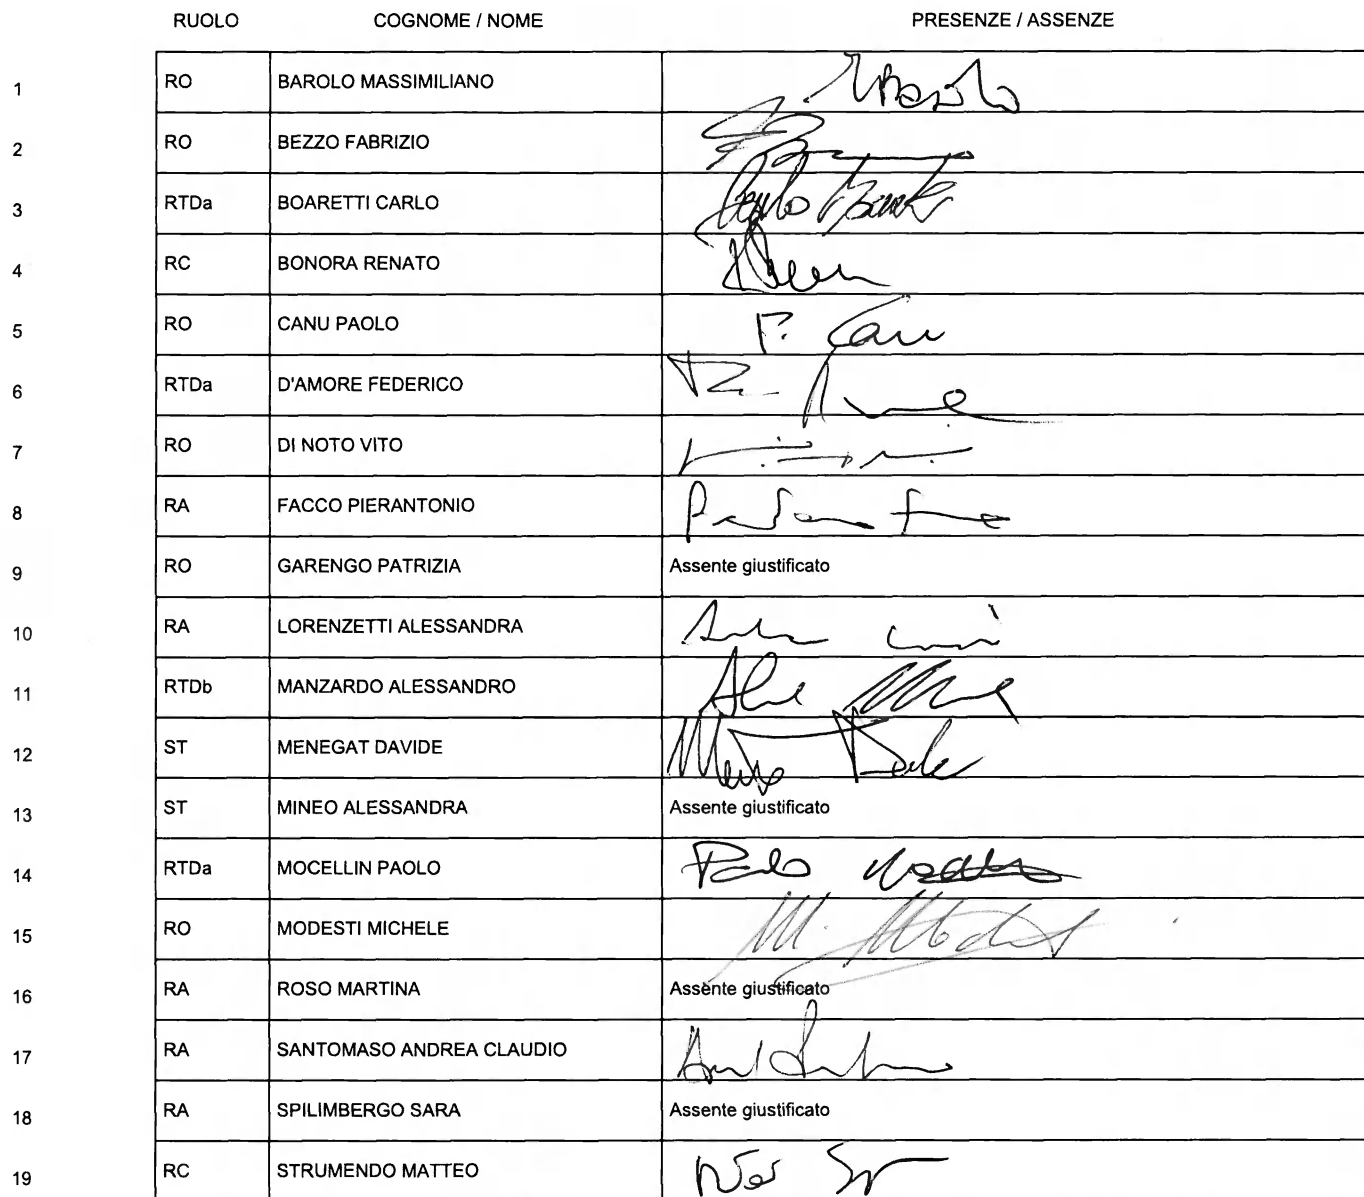 RUOLO COGNOME / NOME PRESENZE / ASSENZE
1 RO BAROLO MASSIMILIANO
2 RO BEZZO FABRIZIO
3 RTDa BOARETTI CARLO
4 RC BONORA RENATO
5 RO CANU PAOLO P. Canu
6 RTDa D'AMORE FEDERICO
7 RO DI NOTO VITO
8 RA FACCO PIERANTONIO
9 RO GARENGO PATRIZIA Assente giustificato
10 RA LORENZETTI ALESSANDRA
11 RTDb MANZARDO ALESSANDRO
12 ST MENEGAT DAVIDE
13 ST MINEO ALESSANDRA Assente giustificato
14 RTDa MOCELLIN PAOLO Paolo
15 RO MODESTI MICHELE M. Modesti
16 RA ROSO MARTINA Assente giustificato
17 RA SANTOMASO ANDREA CLAUDIO
18 RA SPILIMBERGO SARA Assente giustificato
19 RC STRUMENDO MATTEO